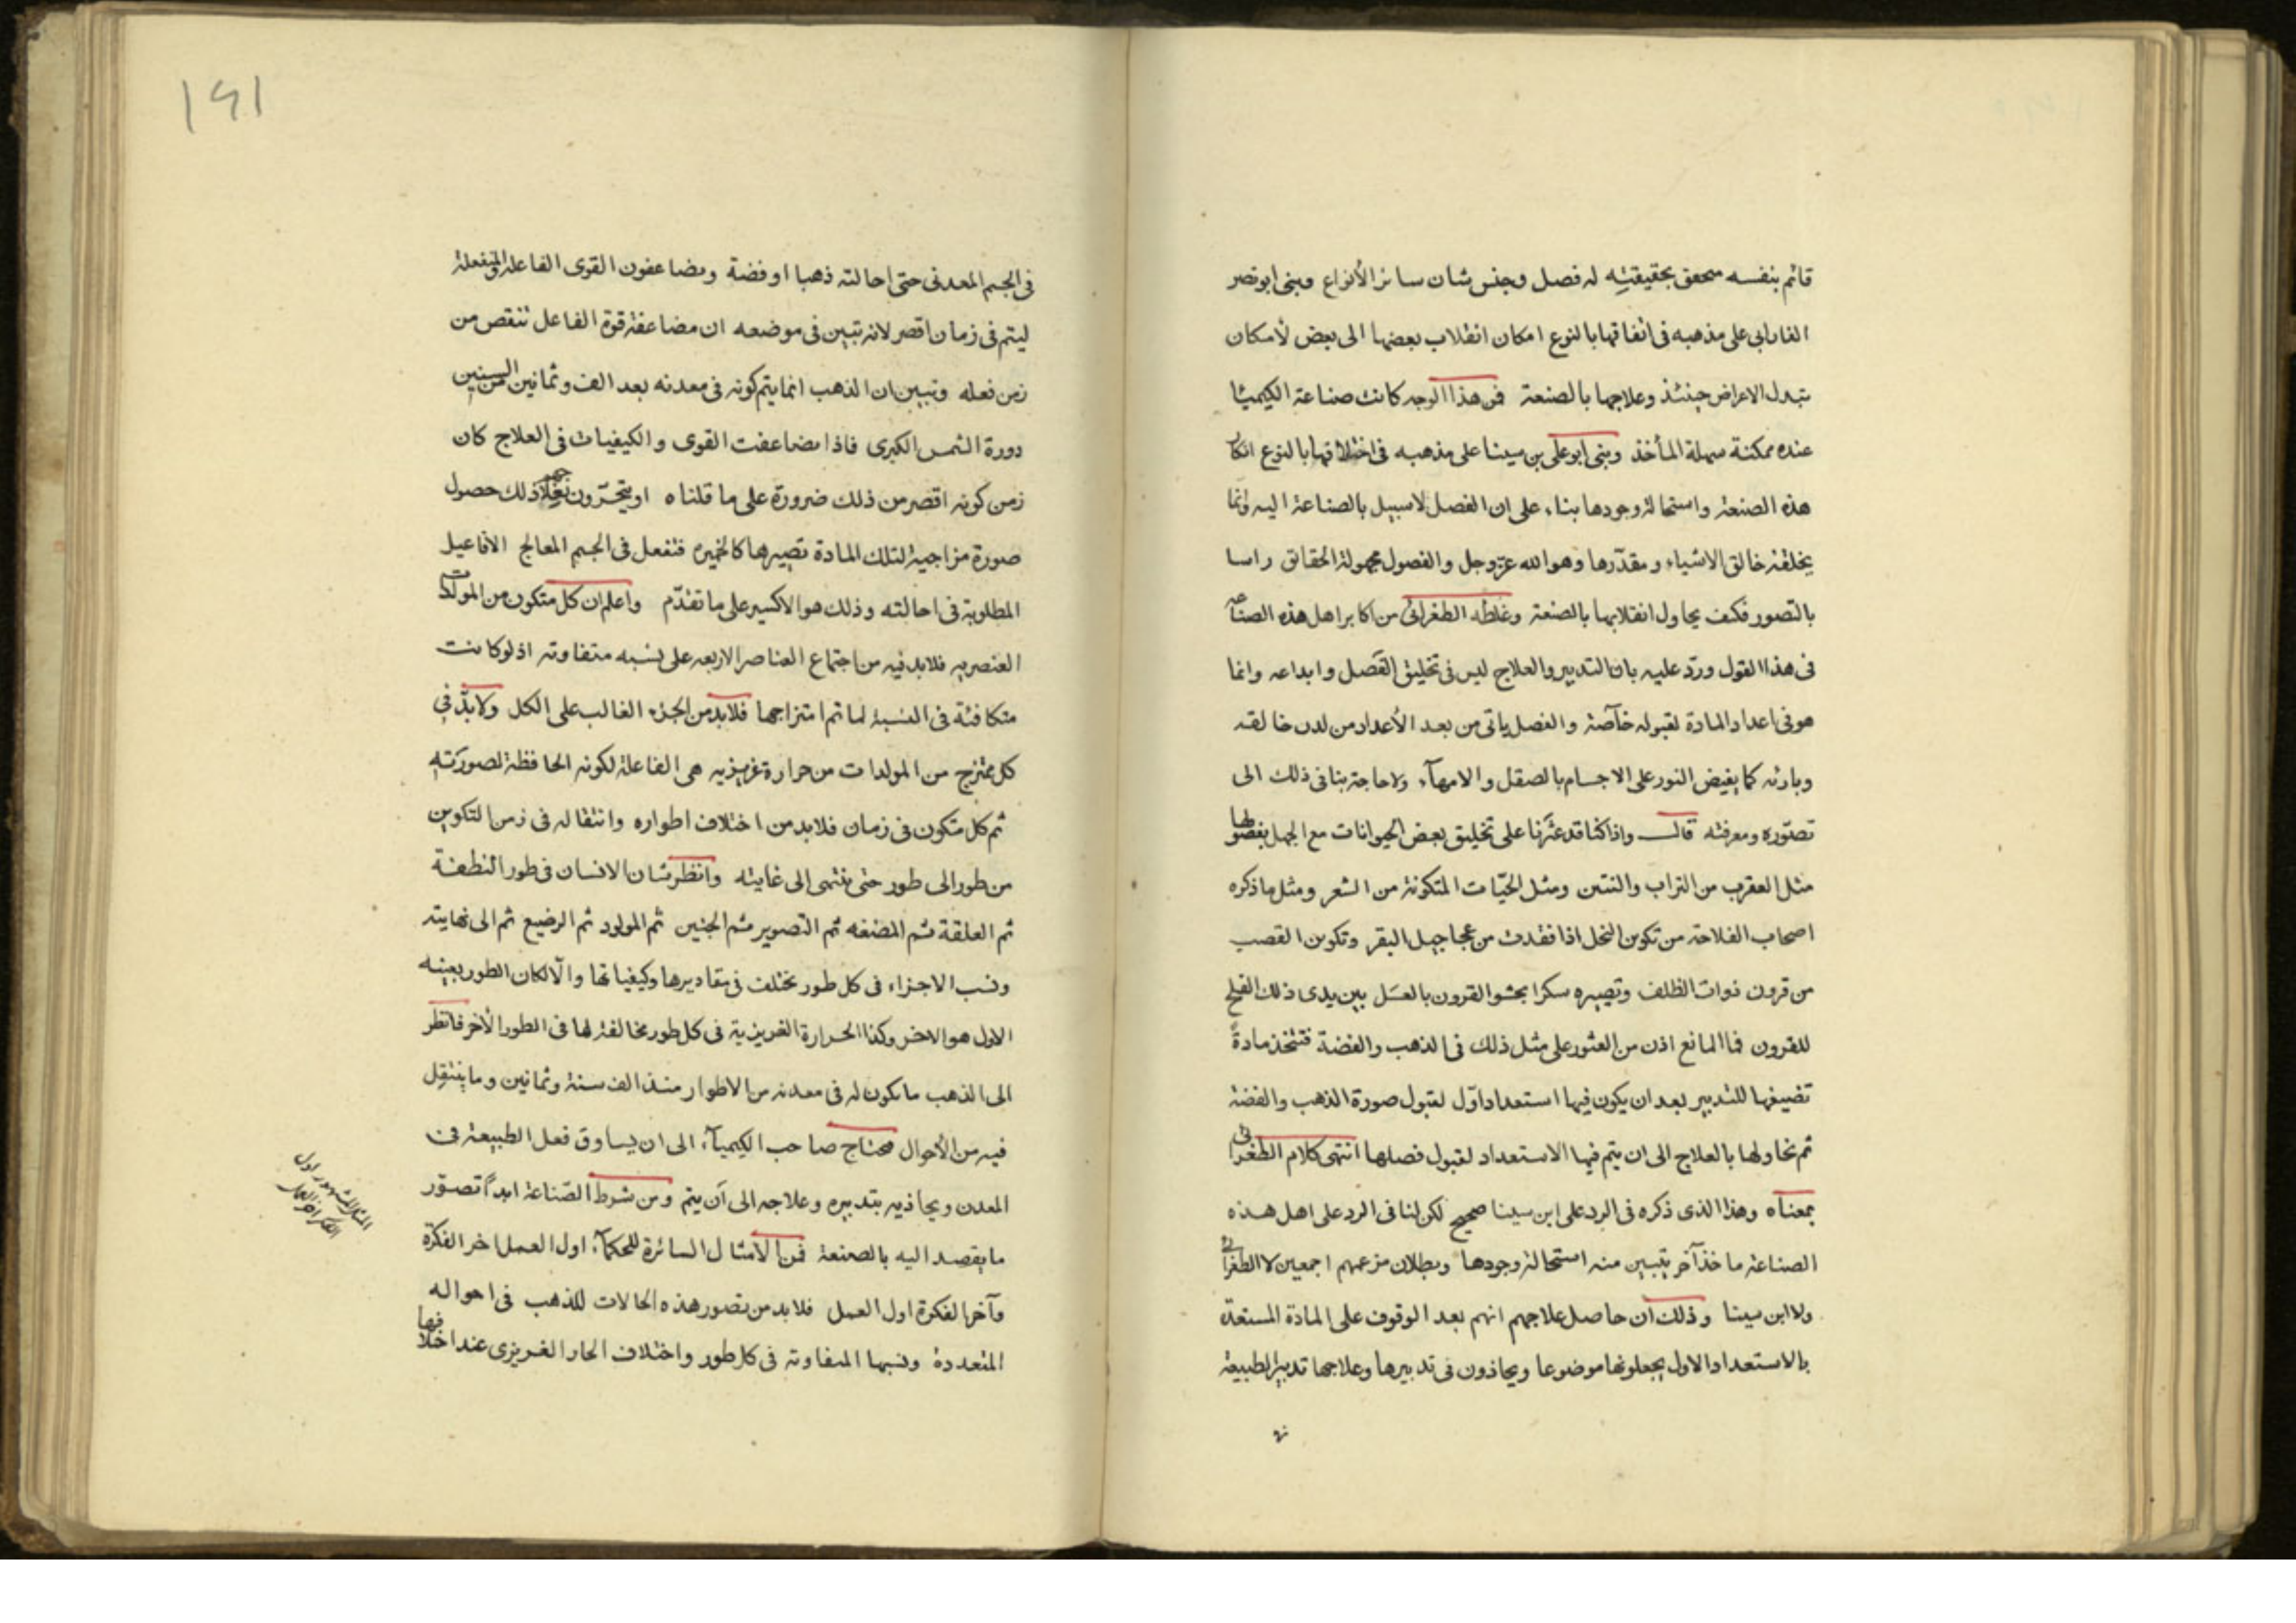 قائم بنفسه متحقق بحقيقته له فصل وجنس شان سائر الأنواع وبنى ابو نصر
الفارابى على مذهبه فى اتفاقها بالنوع امكان انقلاب بعضها الى بعض لأمكان
تبدل الاعراض حينئذ وعلاجها بالصنعة فمن هذا الوجه كانت صناعة الكيميا
عنده ممكنة سهلة المأخذ وبنى ابو على بن سينا على مذهبه فى اختلافها بالنوع انكار
هذه الصنعة واستحالة وجودها بناء على ان الفصل لا سبيل بالصناعة اليه وانما
يخلقه خالق الاشياء ومقدّرها وهو الله عز وجل والفصول مجهولة الحقائق راسا
بالتصور فكيف يحاول انقلابها بالصنعة وغلطه الطغرائى من اكابر اهل هذه الصناعة
فى هذا القول وردّ عليه بان التدبير والعلاج ليس فى تخليق الفصل وابداعه وانما
هو فى اعداد المادة لقبوله خاصّة والفصل ياتى من بعد الأعداد من لدن خالقه
وبارئه كما يفيض النور على الاجسام بالصقل والامهآء ولا حاجة بنا فى ذلك الى
تصوّره ومعرفته قال واذا كنا قد عثرنا على تخليق بعض الحيوانات مع الجهل بفصولها
مثل العقرب من التراب والنتن ومثل الحيّات المتكونة من الشعر ومثل ما ذكره
اصحاب الفلاحة من تكوين النحل اذا فقدت من عجاجيل البقر وتكوين القصب
من قرون ذوات الظلف وتصييره سكرا بحشو القرون بالعسل بين يدى ذلك الفلح
للقرون فما المانع اذن من العثور على مثل ذلك فى الذهب والفضة فتتخذ مادةً
تضيفها للتدبير بعد ان يكون فيها استعداد اوّل لقبول صورة الذهب والفضة
ثم نحاولها بالعلاج الى ان يتم فيها الاستعداد لقبول فصلها انتهى كلام الطغرائى
بمعناه وهذا الذى ذكره فى الرد على ابن سينا صحيح لكن لنا فى الرد على اهل هذه
الصناعة ماخذ آخر يتبين منه استحالة وجودها وبطلان مزعمهم اجمعين لا الطغرائى
ولا ابن سينا وذلك ان حاصل علاجهم انهم بعد الوقوف على المادة المستعدة
بالاستعداد الاول يجعلونها موضوعا ويحاذون فى تدبيرها وعلاجها تدبير الطبيعة
فى
١٤١
فى الجسم المعدنى حتى احالته ذهبا او فضة ويضاعفون القوى الفاعلة والمنفعلة
ليتم فى زمان اقصر لانه تبين فى موضعه ان مضاعفة قوة الفاعل تنقص من
زمن فعله وتبين ان الذهب انما يتم كونه فى معدنه بعد الف وثمانين من السنين
دورة الشمس الكبرى فاذا تضاعفت القوى والكيفيات فى العلاج كان
زمن كونه اقصر من ذلك ضرورة على ما قلناه او يتحرّون بعلاجهم ذلك حصول
صورة مزاجية لتلك المادة تصيرها كالخميره فتفعل فى الجسم المعالج الافاعيل
المطلوبة فى احالته وذلك هو الاكسير على ما تقدّم واعلم ان كل متكون من المولدات
العنصريه فلا بد فيه من اجتماع العناصر الاربعه على نسبه متفاوته اذ لو كانت
متكافئة فى النسبة لما تم امتزاجها فلا بد من الجزء الغالب على الكل ولا بدّ فى
كل ممتزج من المولدات من حرارة غريزيه هى الفاعلة لكونه الحافظة لصورته
ثم كل متكون فى زمان فلا بد من اختلاف اطواره وانتقاله فى زمن التكوين
من طور الى طور حتى ينتهى الى غايته وانظر شان الانسان فى طور النطفة
ثم العلقة ثم المضغه ثم التصوير ثم الجنين ثم المولود ثم الرضيع ثم الى نهايته
ونسب الاجزاء فى كل طور تختلف فى مقاديرها وكيفياتها والّا لكان الطور بعينه
الاول هو الاخر وكذا الحرارة الغريزية فى كل طور مخالفة لها فى الطور الأخر فانظر
الى الذهب ما يكون له فى معدنه من الاطوار منذ الف سنة وثمانين وما ينتقل
فيه من الأحوال فيحتاج صاحب الكيميآء الى ان يساوق فعل الطبيعة فى
المعدن ويحاذيه بتدبيره وعلاجه الى أن يتم ومن شرط الصّناعة ابداً تصوّر
ما يقصد اليه بالصنعة فمن الأمثال السائرة للحكمآء اول العمل اخر الفكرة
وآخر الفكرة اول العمل فلا بد من تصور هذه الحالات للذهب فى احواله
المتعددة ونسبها المتفاوته فى كل طور واختلاف الحار الغريزى عند اختلافها
المثل المشهور اول
الفكر اخر العمل